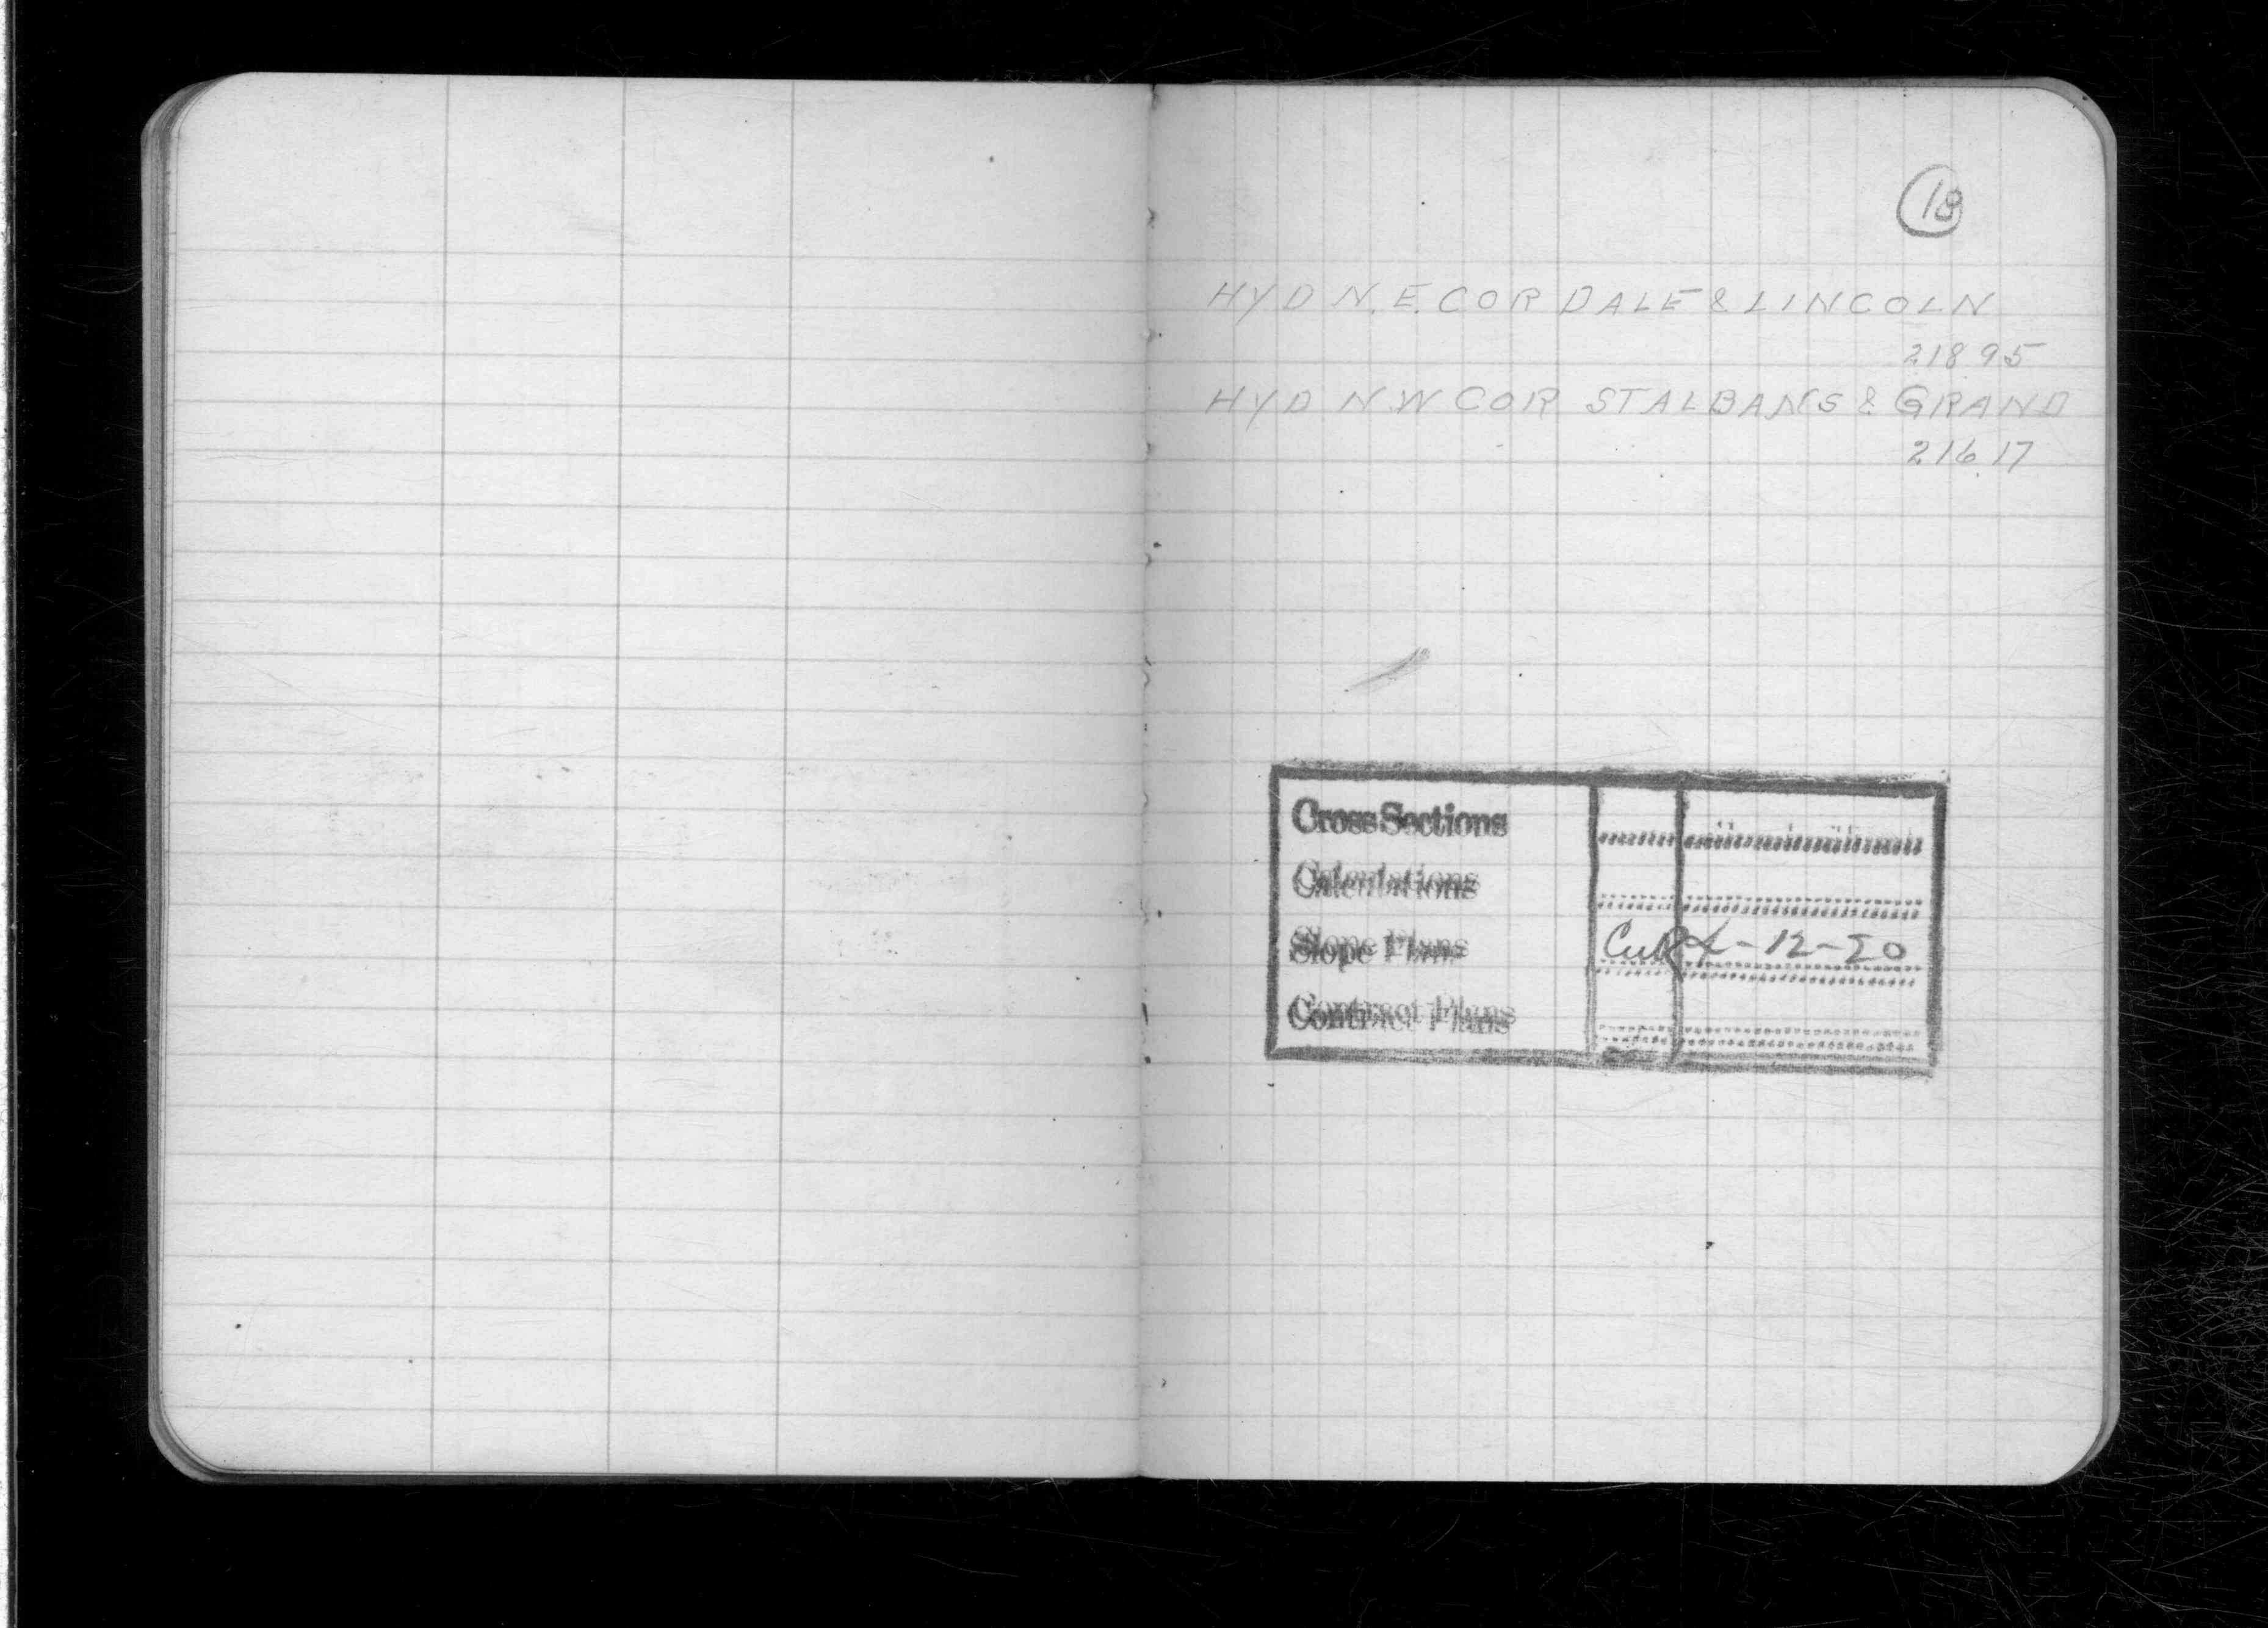 18
HYD N.E. COR DALE & LINCOLN
218 95
HYD N.W COR ST ALBANS & GRAND
216.17
Cross Sections
Calculations
Slope Plans 12-20
Contract Plans